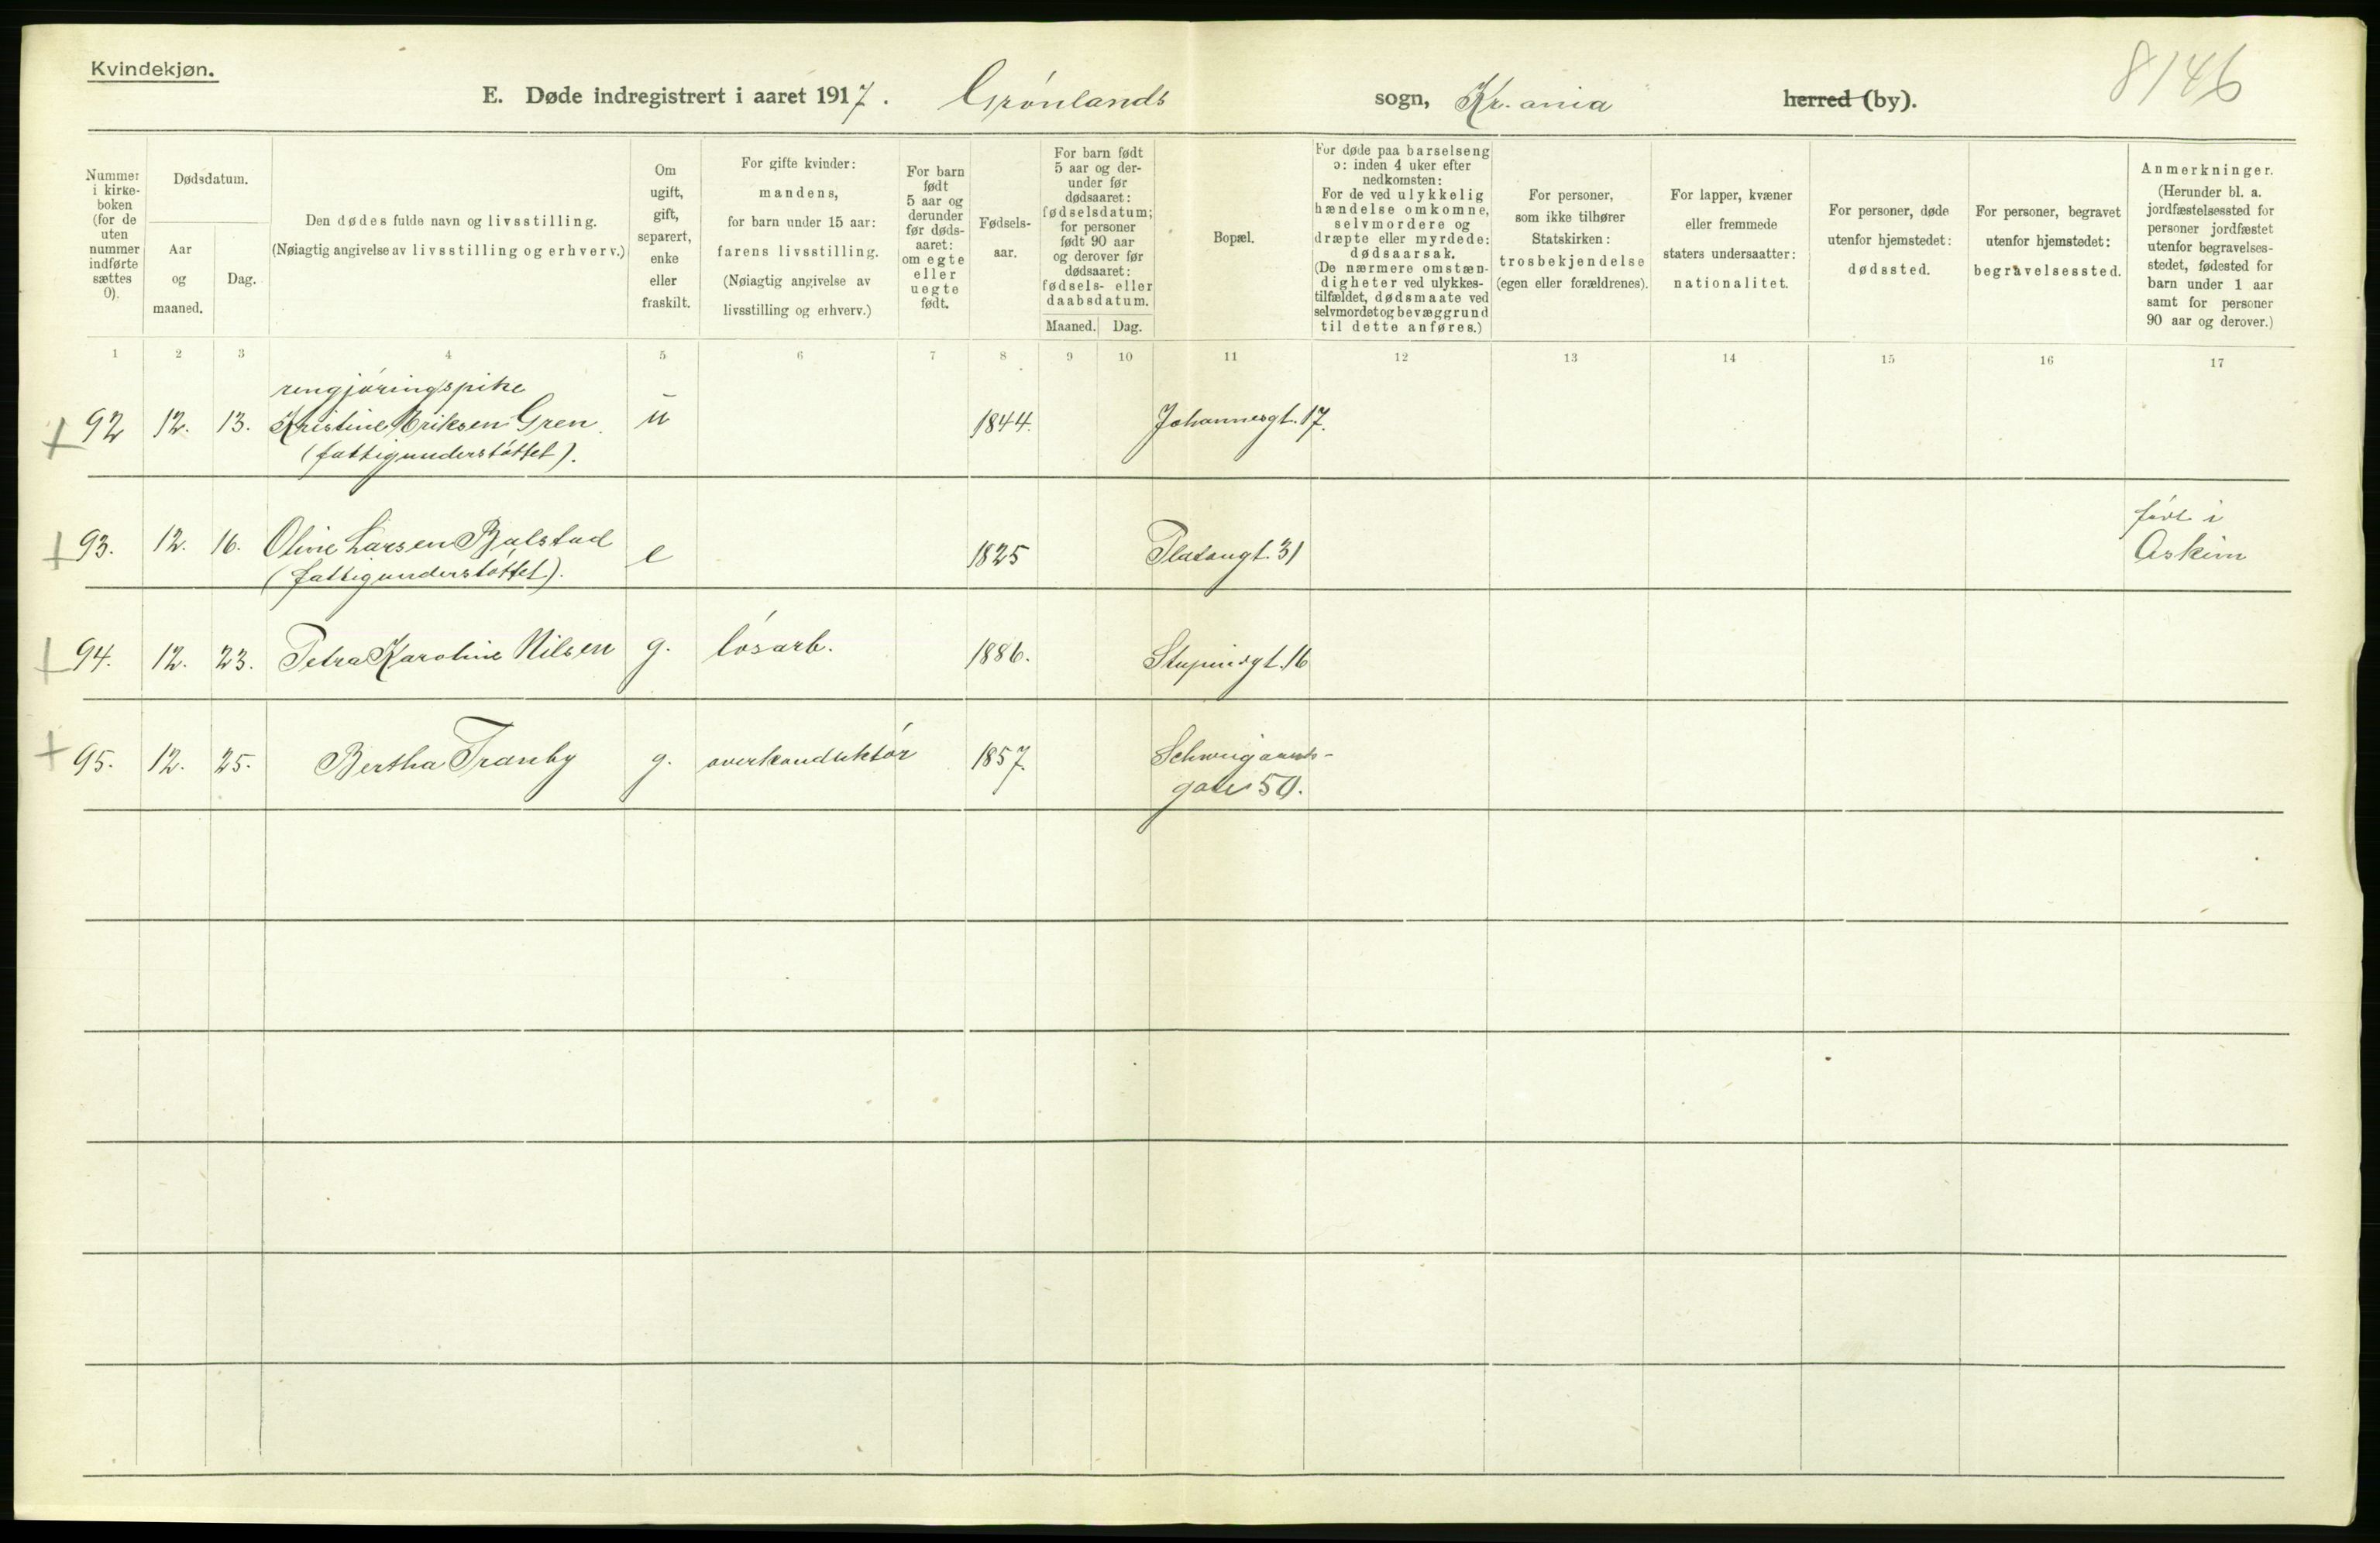 Kvindekjøn.
8146
E. Døde indregistrert i aaret 1917. Grönlands sogn, Kr.ania herred (by).
Nummer i kirkeboken (for de uten nummer indførte sættes 0).
Dødsdatum.
Aar og maaned.
Dag.
Den dødes fulde navn og livsstilling.
(Nøiagtig angivelse av livsstilling og erhverv.)
Om ugift, gift, separert, enke eller fraskilt.
For gifte kvinder: mandens, for barn under 15 aar: farens livsstilling. (Nøiagtig angivelse av livsstilling og erhverv.)
For barn født 5 aar og derunder før dødsaaret: om egte eller uegte født.
Fødselsaar.
For barn født 5 aar og derunder før dødsaaret: fødselsdatum; for personer født 90 aar og derover før dødsaaret: fødsels- eller daabsdatum.
Maaned. Dag.
Bopæl.
For døde paa barselseng ɔ: inden 4 uker efter nedkomsten: For de ved ulykkelig hændelse omkomne, selvmordere og dræpte eller myrdede: dødsaarsak. (De nærmere omstændigheter ved ulykkestilfældet, dødsmaate ved selvmordet og bevæggrund til dette anføres.)
For personer, som ikke tilhører Statskirken: trosbekjendelse (egen eller forældrenes).
For lapper, kvæner eller fremmede staters undersaatter: nationalitet.
For personer, døde utenfor hjemstedet: dødssted.
For personer, begravet utenfor hjemstedet: begravelsessted.
Anmerkninger. (Herunder bl. a. jordfæstelsessted for personer jordfæstet utenfor begravelsesstedet, fødested for barn under 1 aar samt for personer 90 aar og derover.)
1 2 3 4 5 6 7 8 9 10 11 12 13 14 15 16 17
rengjöringspike
92 12. 13. Kristine Eriksen Gren. u 1844. Johannesgt. 17.
(fattigunderstöttet).
født i
93. 12. 16. Oline Larsen Bulstad e 1825 Platougt. 31 Askim
(fattigunderstöttet).
94. 12. 23. Petra Karoline Nilsen g. lösarb. 1886. Stupinsgt. 16
95. 12. 25. Bertha Tranby g. overkonduktör 1857. Schweigaards-
gate 50.